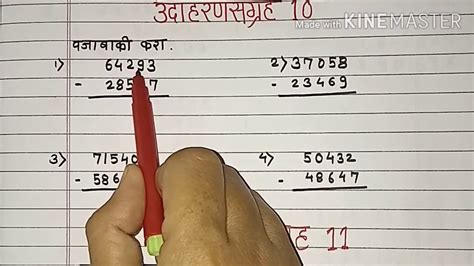 उदाहरणसंग्रह 10
Made with KINEMASTER
वजाबाकी करा.
1) 64293
- 285 7
2) 37058
- 23469
3) 7154
- 586
4) 50432
- 48647
11